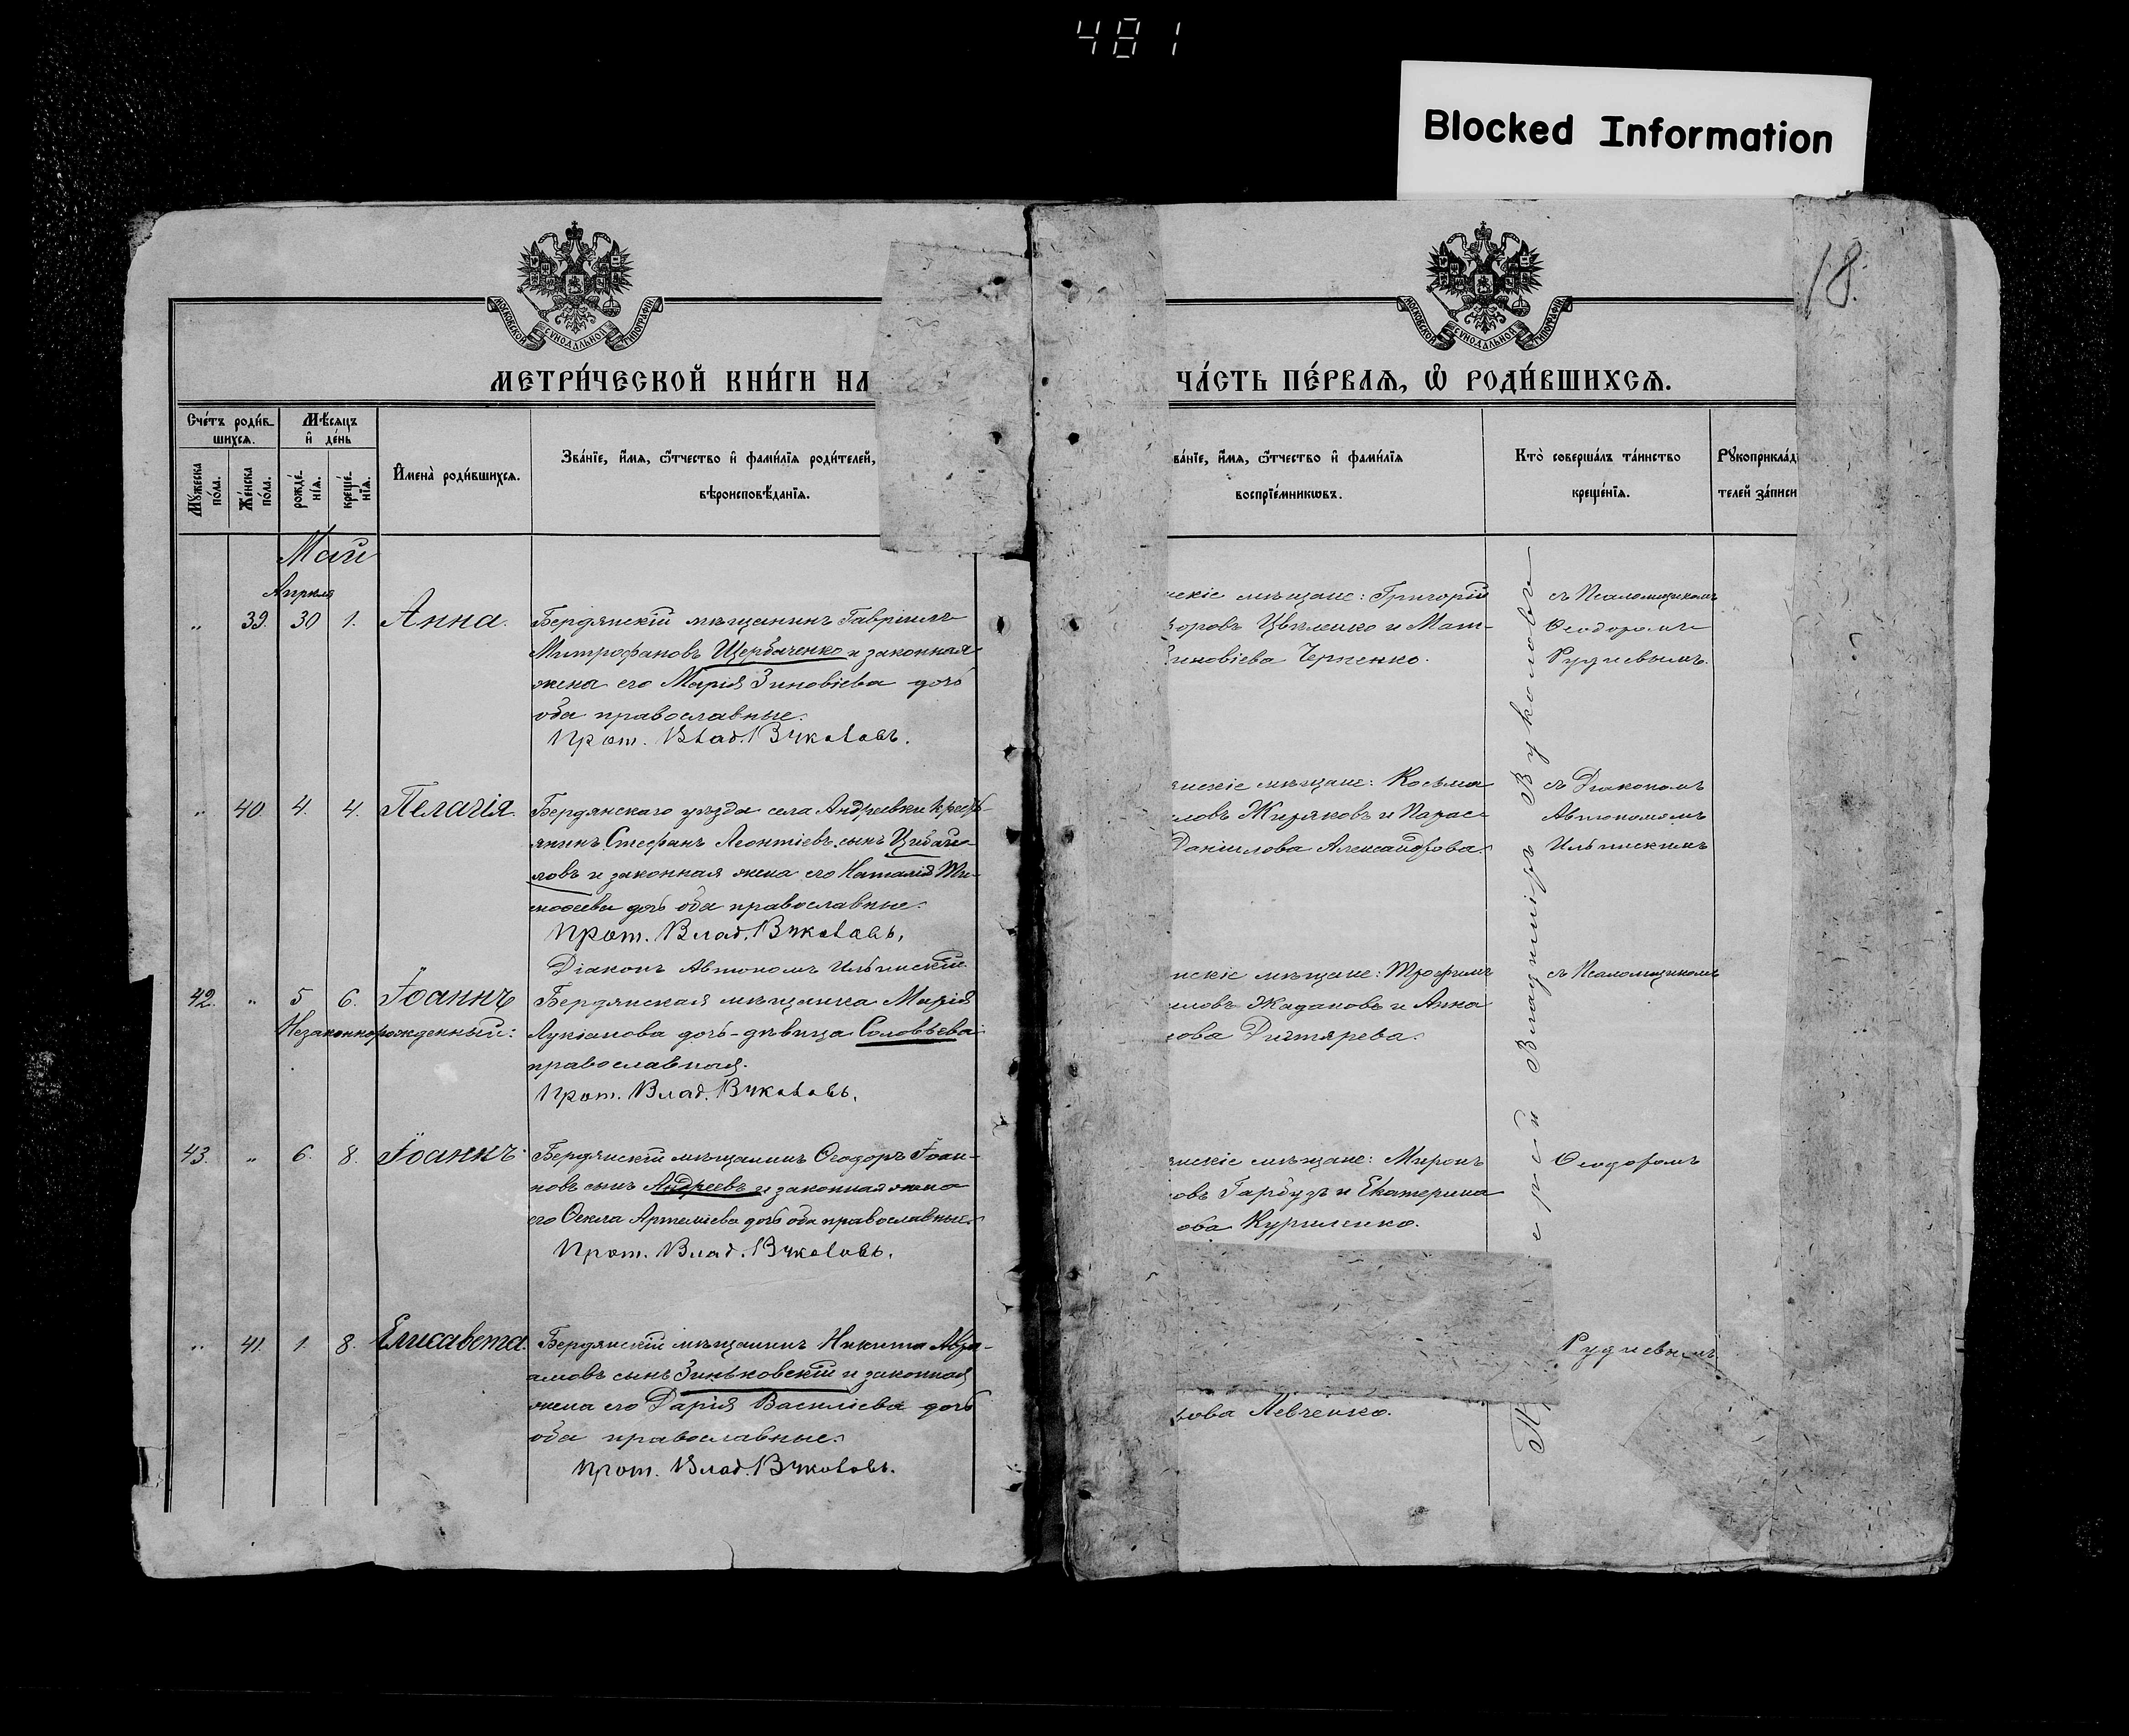 481
Blocked Information
18.
МОСКОВСКОЙ СѴНОДАЛЬНОЙ ТИПОГРАФІИ
МОСКОВСКОЙ СѴНОДАЛЬНОЙ ТИПОГРАФІИ
МЕТРИ́ЧЕСКОЙ КНИ́ГИ НА
ЧА́СТЬ ПЕ́РВАѦ, Ѡ҆ РОДИ́ВШИХСѦ.
Сче́тъ роди́в-
шихсѧ.
Мѣ́сяцъ
и҆ де́нь
Мꙋ́жеска по́ла.
Же́нска по́ла.
рожде́-
нїѧ.
креще́-
нїѧ.
И҆мена̀ роди́вшихсѧ.
Зва́нїе, и҆́мѧ, ѻ҆́тчество и҆ фами́лїѧ роди́телей,
вѣроисповѣ́данїѧ.
ва́нїе, и҆́мѧ, ѻ҆́тчество и҆ фами́лїѧ
воспрїе́мникѡвъ.
Кто̀ соверша́лъ та́инство
креще́нїѧ.
Рꙋкоприкла́д
телей за́писи
Май
Апрѣля
„ 39. 30 1. Анна.
Бердянскій мѣщанинъ Гавріилъ
Митрофановъ Щербаченко и законная
жена его Марія Зиновіева дочь
оба православные.
Прот. Влад. Вуколовъ.
нскіе мѣщане: Григорій
доровъ Цвѣленко и Мат-
Зиновіева Черненко.
съ Псаломщикомъ
Ѳеодоромъ
Рудневымъ.
„ 40. 4. 4. Пелагія.
Бердянскаго уѣзда села Андреевки крест-
янинъ Стефанъ Леонтіевъ сынъ Цибай-
ловъ и законная жена его Наталія Ти-
моѳеева дочь оба православные.
Прот. Влад. Вуколовъ.
Діаконъ Автономъ Ильинскій.
янскіе мѣщане: Косьма
ловъ Жиряковъ и Парас-
Даніилова Александрова.
съ Діакономъ
Автономомъ
Ильинскимъ
42. „ 5 6. Іоаннъ
Незаконнорожденный:
Бердянская мѣщанка Марія
Лукіанова дочь-дѣвица Соловьева
православная.
Прот. Влад. Вуколовъ.
нскіе мѣщане: Трофимъ
иловъ Жадановъ и Анна
лова Дигтярева.
съ Псаломщикомъ
43. „ 6. 8. Іоаннъ.
Бердянскій мѣщанинъ Ѳеодоръ Іоан-
новъ сынъ Андреевъ и законная жена
его Ѳекла Артеміева дочь оба православные.
Прот. Влад. Вуколовъ.
янскіе мѣщане: Миронъ
овъ Гарбузъ и Екатерина
ова Куриленко.
Ѳеодоромъ
„ 41. 1. 8. Елисавета.
Бердянскій мѣщанинъ Никита Авра-
амовъ сынъ Зиньковскій и законная
жена его Дарія Василіева дочь
оба православные.
Прот. Влад. Вуколовъ.
рова Левченко.
Рудневымъ.
ерей Владиміръ Вуколовъ